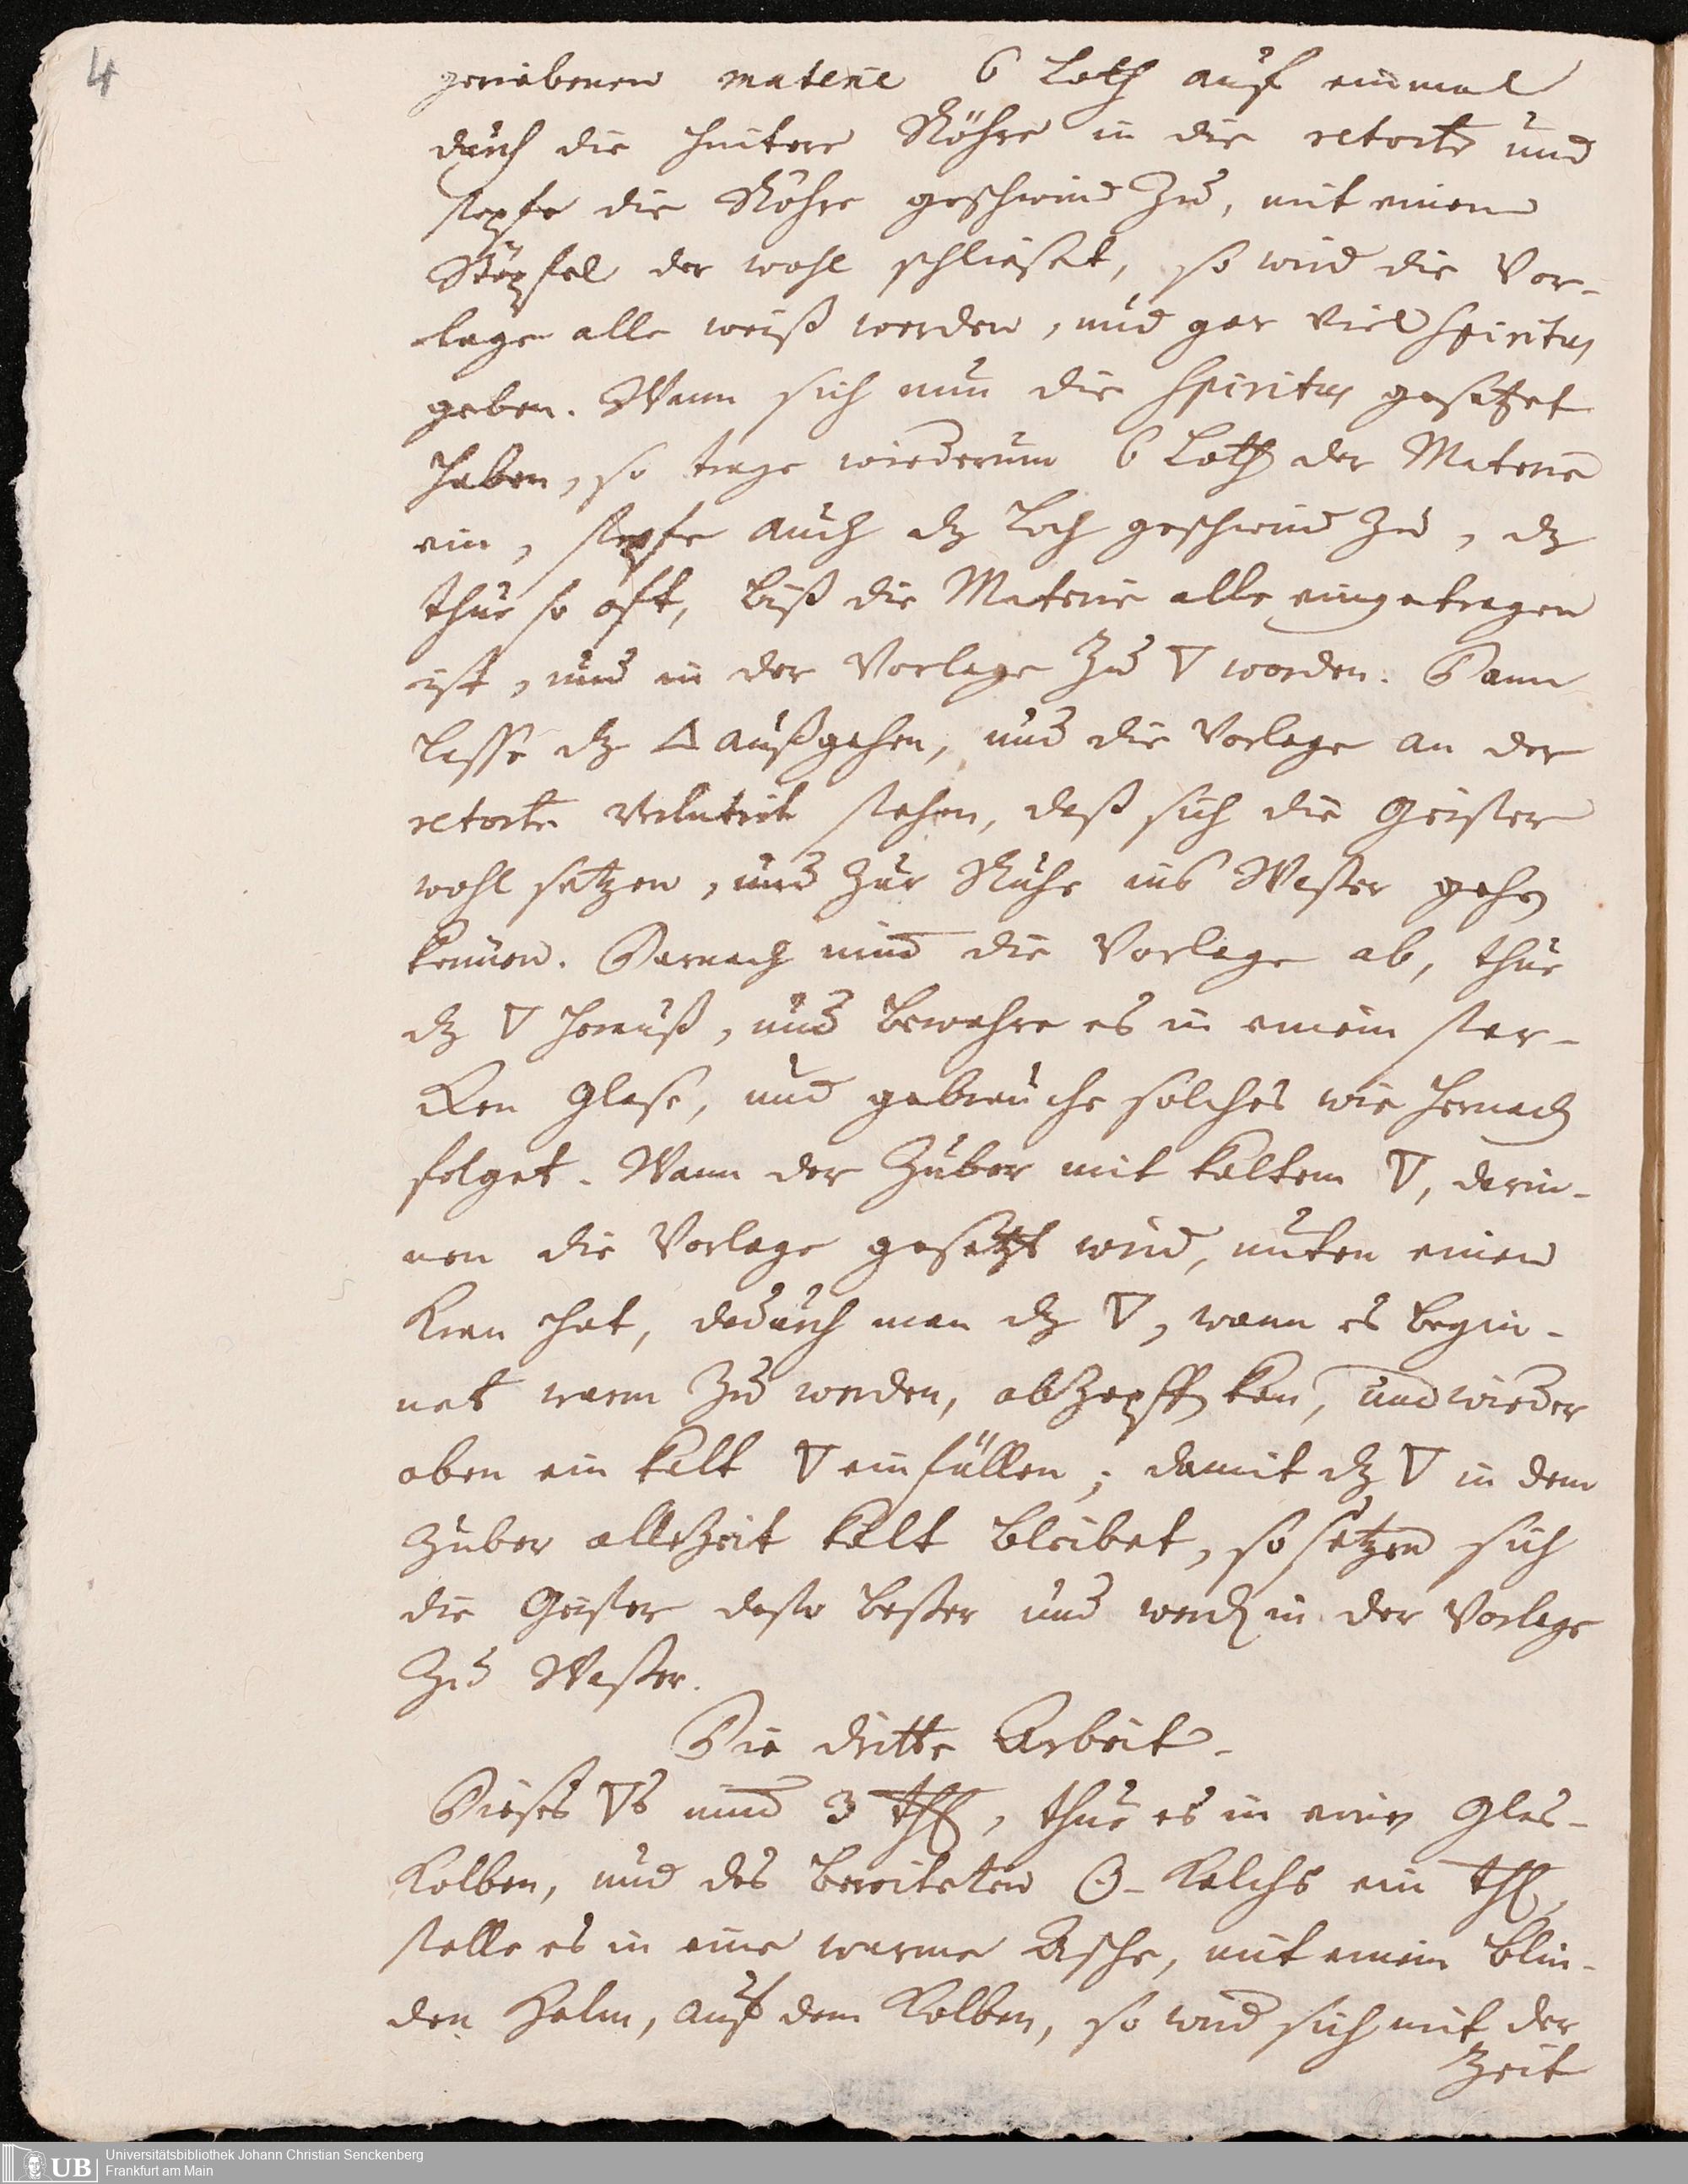 4
geriebenen materie 6 Loth auf einmal
durch die hintere Röhre in die retorte und
stopfe die Röhre geschwind zu, mit einem
Stöpfel der wohl schließet, so wird die Vor-
lage alle weiß werden, und gar viel Spiritus
geben. Wann sich nun die Spiritus gesetzet
haben, so trage wiederum 6 Loth der Materie
ein, stopfe auch dz Loch geschwind zu, dz
thue so oft, biß die Materie alle eingetragen
ist, und in der Vorlage zu 🜄 worden. Dann
lasse dz 🜂 außgehen, und die Vorlage an der
retorte verlutirt stehen, daß sich die Geister
wohl setzen, und zur Ruhe ins Waßer gehen
können. Darnach nim̅ die Vorlage ab, thue
dz 🜄 herauß, und bewahre es in einem star-
cken Glase, und gebrauche solches wie hernach
folget. Wann der Zuber mit kaltem 🜄, darin-
nen die Vorlage gesetzt wird, unten einen
Kran hat, dadurch man dz 🜄, wann es begin-
net warm zu werden, abzapffen kan, und wieder
oben ein kalt 🜄 einfüllen, damit dz 🜄 in dem
Zuber allezeit kalt bleibet, so setzen sich
die Geister desto beßer und werden in der Vorlage
zu Waßer.
Die dritte Arbeit.
Dieses 🜄s nim̅ 3 Thl, thue es in einen Glas-
Kolben, und des bereiteten ☉-Kalchs ein Thl,
stelle es in eine warme Asche, mit einem blin-
den Helm, auf dem Kolben, so wird sich mit der
Zeit
UB
Universitätsbibliothek Johann Christian Senckenberg
Frankfurt am Main